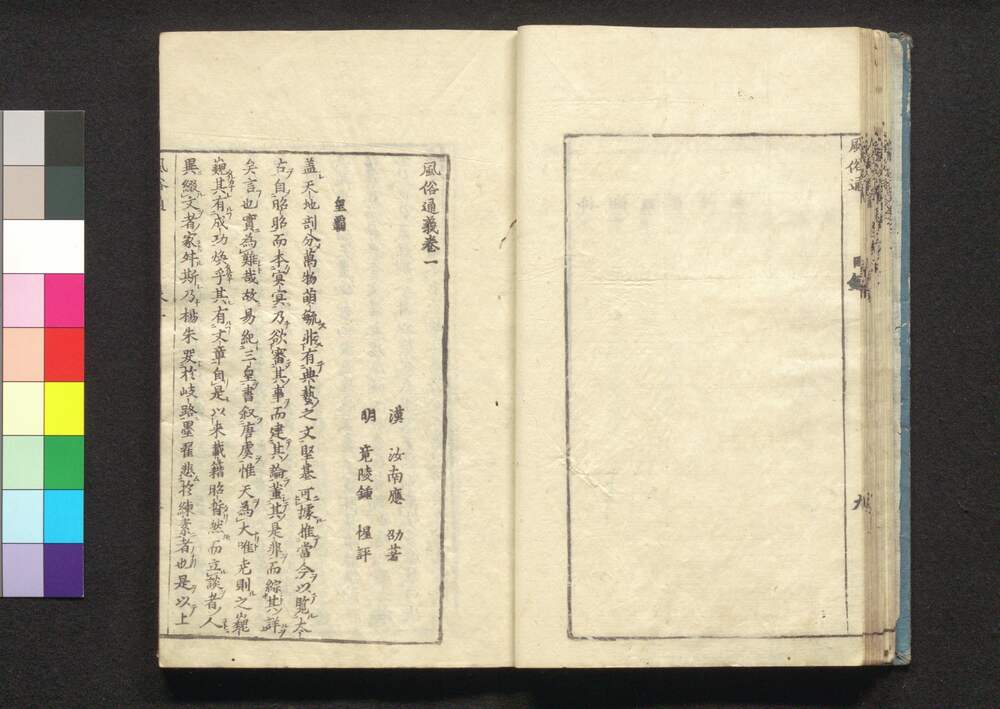 風俗通
目録
九
風俗通義卷一
漢 汝南應 劭著
明 竟陵鍾 惺評
皇霸
蓋天地剖分萬物萌毓非有典藝之文堅基可據推當今以覽太
古自昭昭而本冥冥乃欲審其事而建其論董其是非而綜其詳
矣言也實為難哉故易紀三皇書叙唐虞惟天為大唯尭則之巍
巍其有成功煥乎其有文章自是以来載籍昭晳然而立談者人
異綴文者家舛斯乃楊朱哭於岐路墨翟悲於練素者也是以上